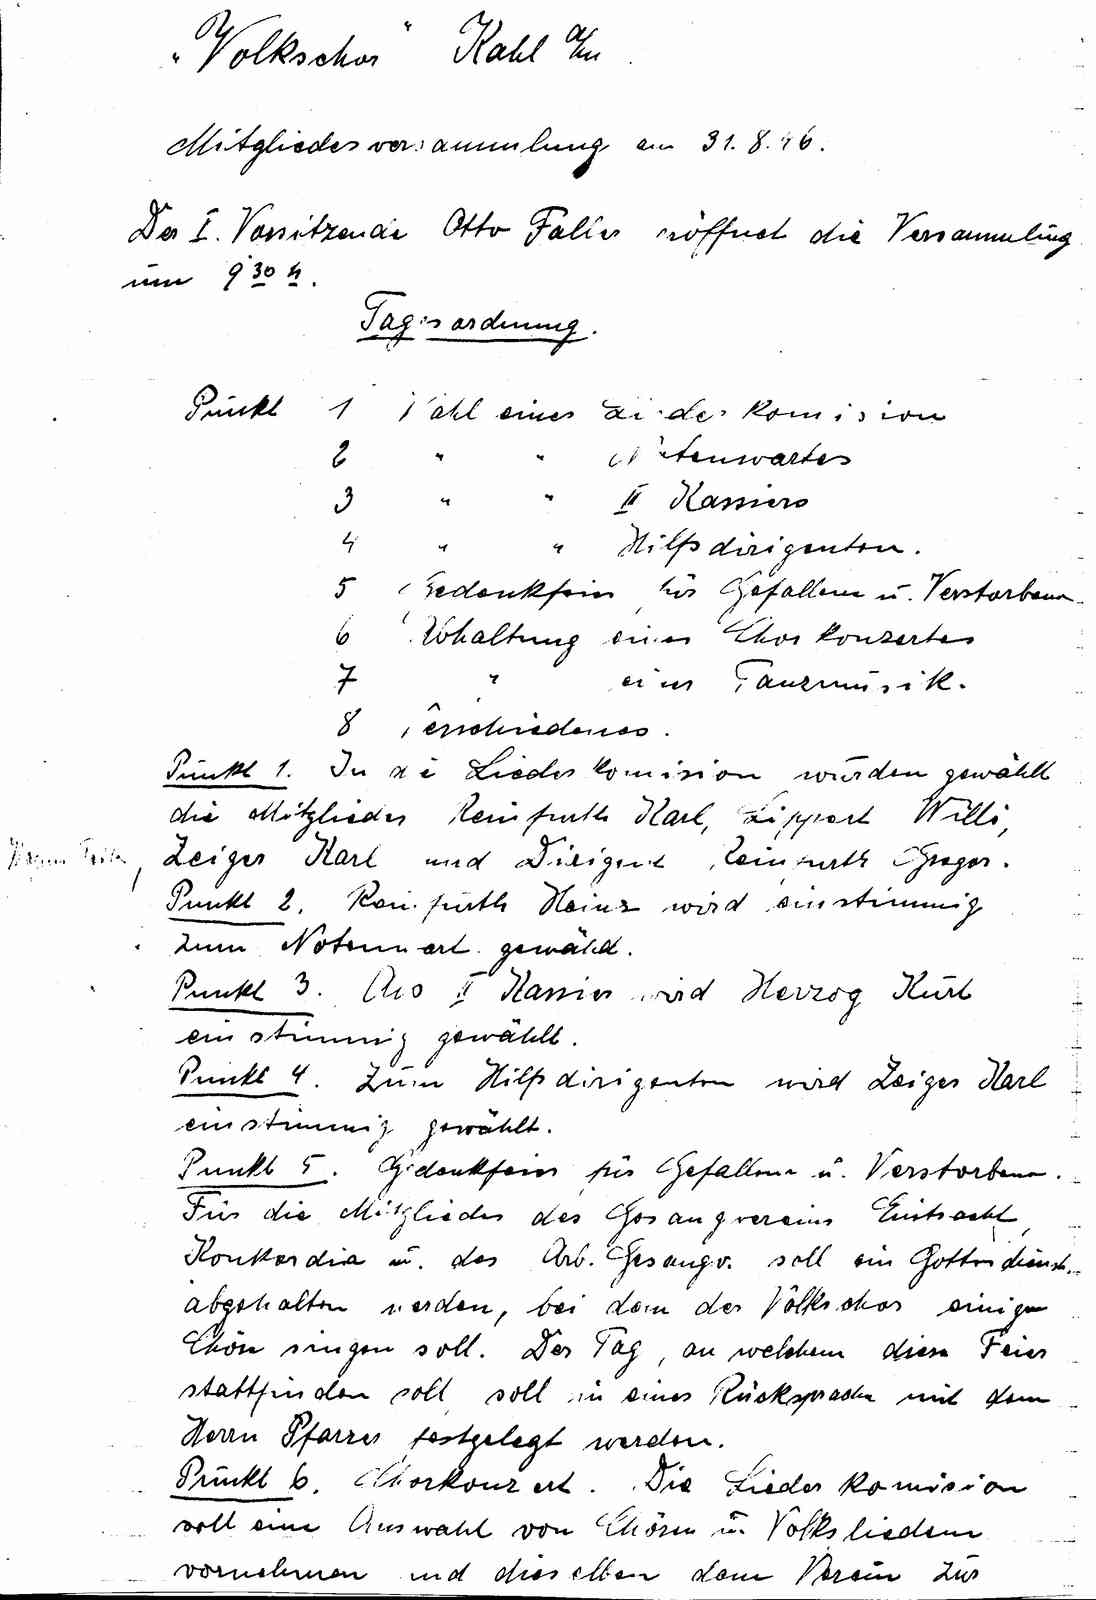 „Volkschor" Kahl a/M
Mitgliederversammlung am 31.8.46.
Der I. Vorsitzende Otto Faller eröffnet die Versammlung
um 9 30 h.
Tagesordnung.
Punkt 1 Wahl einer Liederkomision
2 " " Notenwartes
3 " " II Kassiers
4 " " Hilfsdirigenten.
5 Gedenkfeier für Gefallene u. Verstorbene
6 Abhaltung eines Chorkonzertes
7 " einer Tanzmusik.
8 Verschiedenes.
Punkt 1. In die Liederkomision wurden gewählt
die Mitglieder Reinfurth Karl, Lippert Willi,
Zeiger Karl und Dirigent Reinfurth Gregor.
Punkt 2. Reinfurth Heinz wird einstimmig
zum Notenwart gewählt.
Punkt 3. Als II Kassier wird Herzog Kurt
einstimmig gewählt.
Punkt 4. Zum Hilfsdirigenten wird Zeiger Karl
einstimmig gewählt.
Punkt 5. Gedenkfeier für Gefallene u. Verstorbene.
Für die Mitglieder des Gesangvereins Eintracht,
Konkordia u. des Arb. Gesangv. soll ein Gottesdienst
abgehalten werden, bei dem der Volkschor einige
Chöre singen soll. Der Tag, an welchem diese Feier
stattfinden soll, soll in einer Rücksprache mit dem
Herrn Pfarrer festgelegt werden.
Punkt 6. Chorkonzert. Die Liederkomision
soll eine Auswahl von Chören u. Volksliedern
vornehmen und dieselben dem Verein zur